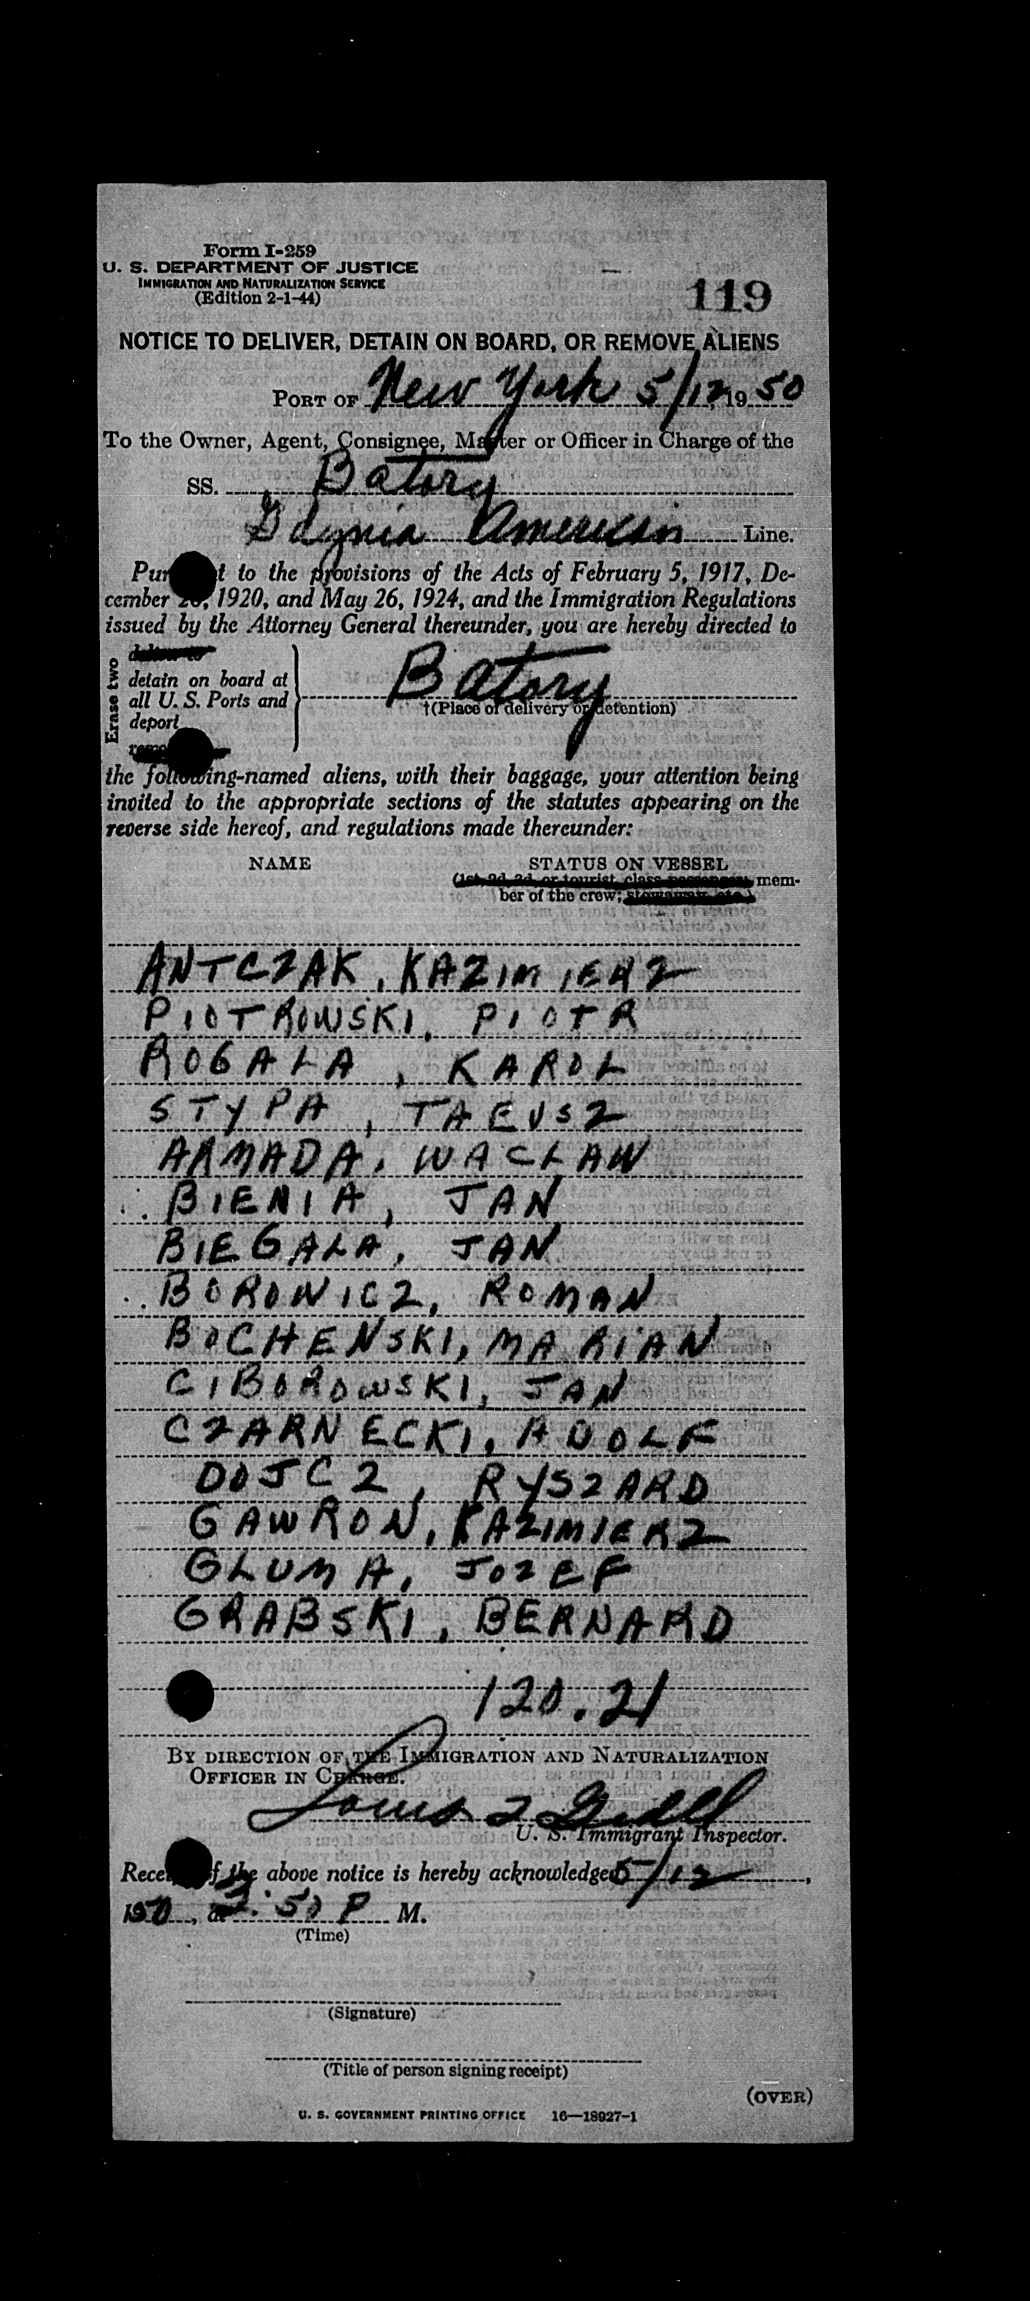 Form I-259
U. S. DEPARTMENT OF JUSTICE
IMMIGRATION AND NATURALIZATION SERVICE
(Edition 2-1-44)
119
NOTICE TO DELIVER, DETAIN ON BOARD, OR REMOVE ALIENS
PORT OF New York 5/12, 1950
To the Owner, Agent, Consignee, Master or Officer in Charge of the
SS. Batory
Gdynia American Line.
Pur t to the provisions of the Acts of February 5, 1917, De-
cember 20, 1920, and May 26, 1924, and the Immigration Regulations
issued by the Attorney General thereunder, you are hereby directed to
Erase two
deliver to
detain on board at
all U. S. Ports and
deport
Batory
†(Place of delivery or detention)
the following-named aliens, with their baggage, your attention being
invited to the appropriate sections of the statutes appearing on the
reverse side hereof, and regulations made thereunder:
NAME STATUS ON VESSEL
(1st, 2d, 3d, or tourist class passenger, mem-
ber of the crew; stowaway, etc.)
ANTCZAK, KAZIMIERZ
PIOTROWSKI, PIOTR
ROGALA, KAROL
STYPA, TAEUSZ
ARMADA, WACLAW
BIENIA, JAN
BIEGALA, JAN
BORONICZ, ROMAN
BOCHENSKI, MARIAN
CIBOROWSKI, JAN
CZARNECKI, ADOLF
DOJCZ, RYSZARD
GAWRON, KAZIMIERZ
GLUMA, JOZEF
GRABSKI, BERNARD
120.21
BY DIRECTION OF THE IMMIGRATION AND NATURALIZATION
OFFICER IN CHARGE.
Louis
U. S. Immigrant Inspector.
Rece f the above notice is hereby acknowledged 5/12,
1950, at 2:50 P M.
(Time)
(Signature)
(Title of person signing receipt)
(OVER)
U. S. GOVERNMENT PRINTING OFFICE 16—18927-1